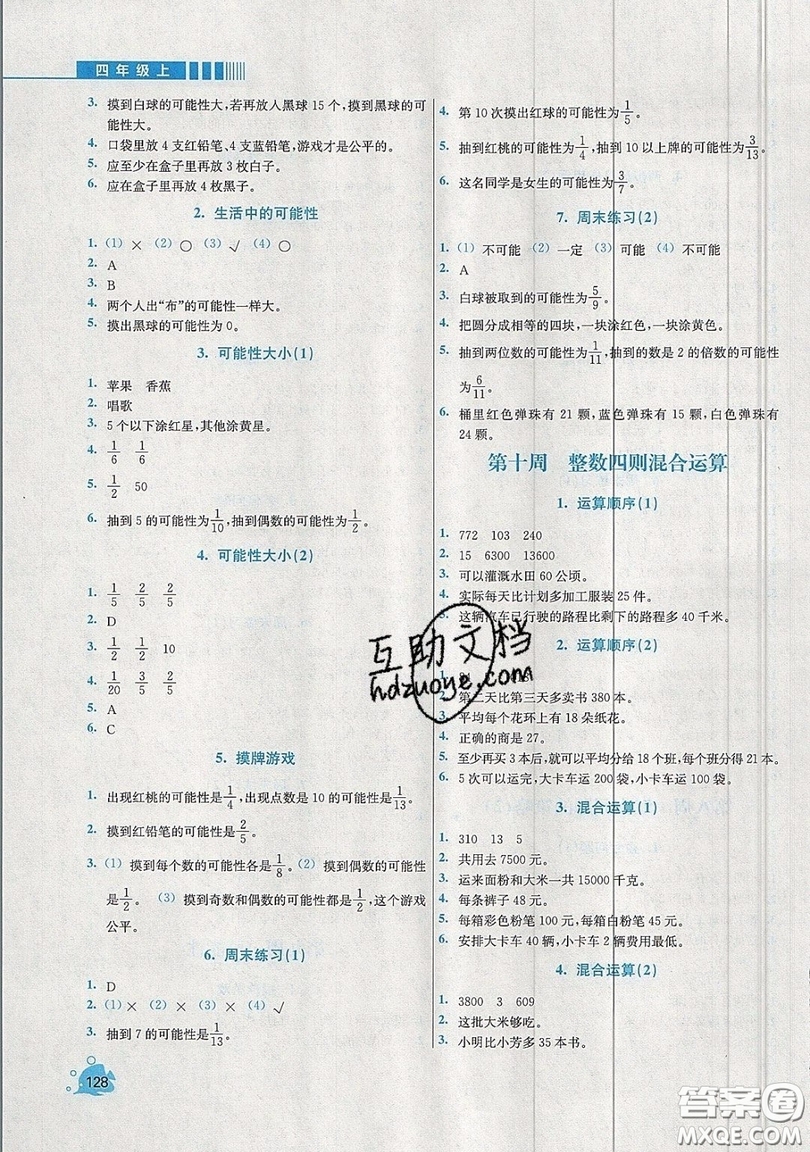 四年级上
3. 摸到白球的可能性大,若再放人黑球 15 个,摸到黑球的可
能性大。
4. 口袋里放 4 支红铅笔、4 支蓝铅笔,游戏才是公平的。
5. 应至少在盒子里再放 3 枚白子。
6. 应在盒子里再放 4 枚黑子。
2. 生活中的可能性
1. (1) × (2) ○ (3) √ (4) ○
2. A
3. B
4. 两个人出“布”的可能性一样大。
5. 摸出黑球的可能性为 0。
3. 可能性大小(1)
1. 苹果 香蕉
2. 唱歌
3. 5 个以下涂红星,其他涂黄星。
4. 1/6 1/6
5. 1/2 50
6. 抽到 5 的可能性为1/10,抽到偶数的可能性为1/2。
4. 可能性大小(2)
1. 1/5 2/5 2/5
2. D
3. 1/2 1/2 10
4. 1/20 3/5 2/5
5. A
6. C
5. 摸牌游戏
1. 出现红桃的可能性是1/4,出现点数是 10 的可能性是1/13。
2. 摸到红铅笔的可能性是2/5。
3. (1) 摸到每个数的可能性各是1/8。 (2) 摸到偶数的可能性
是1/2。 (3) 摸到奇数和偶数的可能性都是1/2,这个游戏
公平。
6. 周末练习(1)
1. D
2. (1) × (2) × (3) × (4) √
3. 抽到 7 的可能性是1/13。
128
4. 第 10 次摸出红球的可能性为1/5。
5. 抽到红桃的可能性为1/4,抽到 10 以上牌的可能性为3/13。
6. 这名同学是女生的可能性为3/7。
7. 周末练习(2)
1. (1) 不可能 (2) 一定 (3) 可能 (4) 不可能
2. A
3. 白球被取到的可能性为5/9。
4. 把圆分成相等的四块,一块涂红色,一块涂黄色。
5. 抽到两位数的可能性为1/11,抽到的数是 2 的倍数的可能性
为6/11。
6. 桶里红色弹珠有 21 颗,蓝色弹珠有 15 颗,白色弹珠有
24 颗。
第十周 整数四则混合运算
1. 运算顺序(1)
1. 772 103 240
2. 15 6300 13600
3. 可以灌溉水田 60 公顷。
4. 实际每天比计划多加工服装 25 件。
5. 这辆汽车已行驶的路程比剩下的路程多 40 千米。
2. 运算顺序(2)
1.
2. 第二天比第三天多卖书 380 本。
3. 平均每个花环上有 18 朵纸花。
4. 正确的商是 27。
5. 至少再买 3 本后,就可以平均分给 18 个班,每个班分得 21 本。
6. 5 次可以运完,大卡车运 200 袋,小卡车运 100 袋。
3. 混合运算(1)
1. 310 13 5
2. 共用去 7500 元。
3. 运来面粉和大米一共 15000 千克。
4. 每条裤子 48 元。
5. 每箱彩色粉笔 100 元,每箱白粉笔 45 元。
6. 安排大卡车 40 辆,小卡车 2 辆费用最低。
4. 混合运算(2)
1. 3800 3 609
2. 这批大米够吃。
3. 小明比小芳多 35 本书。
互助文档
hdzuoye.com
答案圈
MXQE.COM